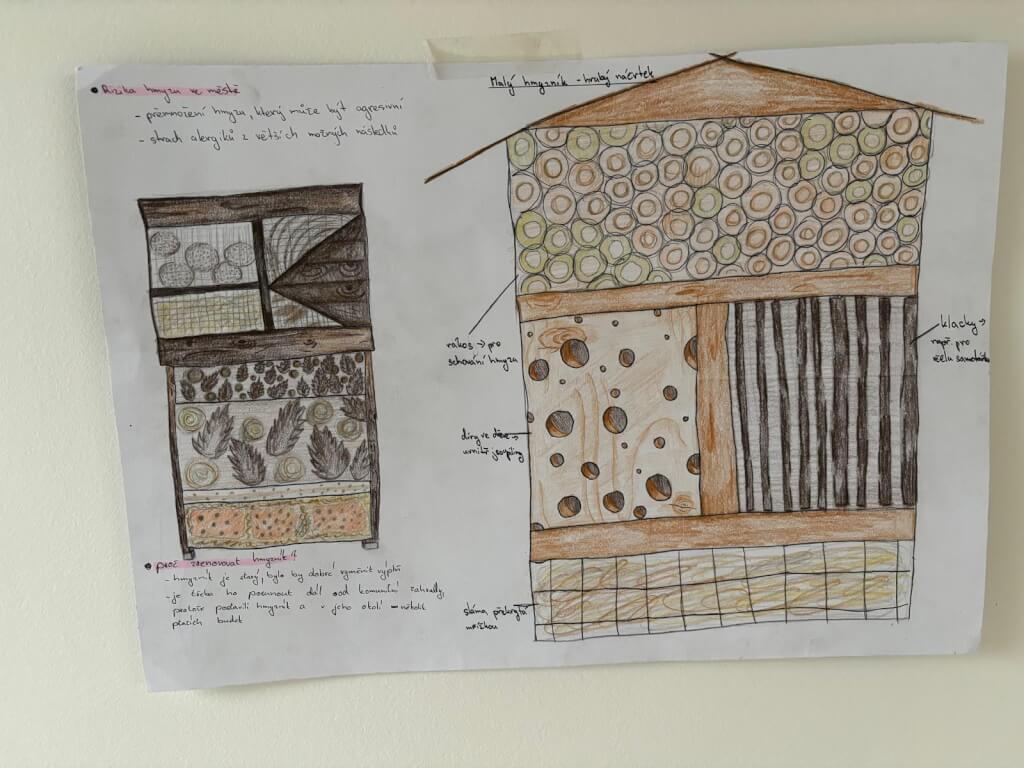 • Rizika hmyzu ve městě
- přemnožení hmyzu, který může být agresivní
- strach alergiků z větších možných následků
Malý hmyzník - hrubý náčrtek
rákos → pro
schování hmyzu
klacky →
např. pro
včelu samotářku
díry ve dřevě →
uvnitř jsou piliny
sláma překrytá
mřížkou
• proč renovovat hmyzník?
- hmyzník je starý, bylo by dobré vyměnit výplň
- je třeba ho posunout dál od komunitní zahrady,
protože postavili hmyzník a v jeho okolí několik
ptačích budek